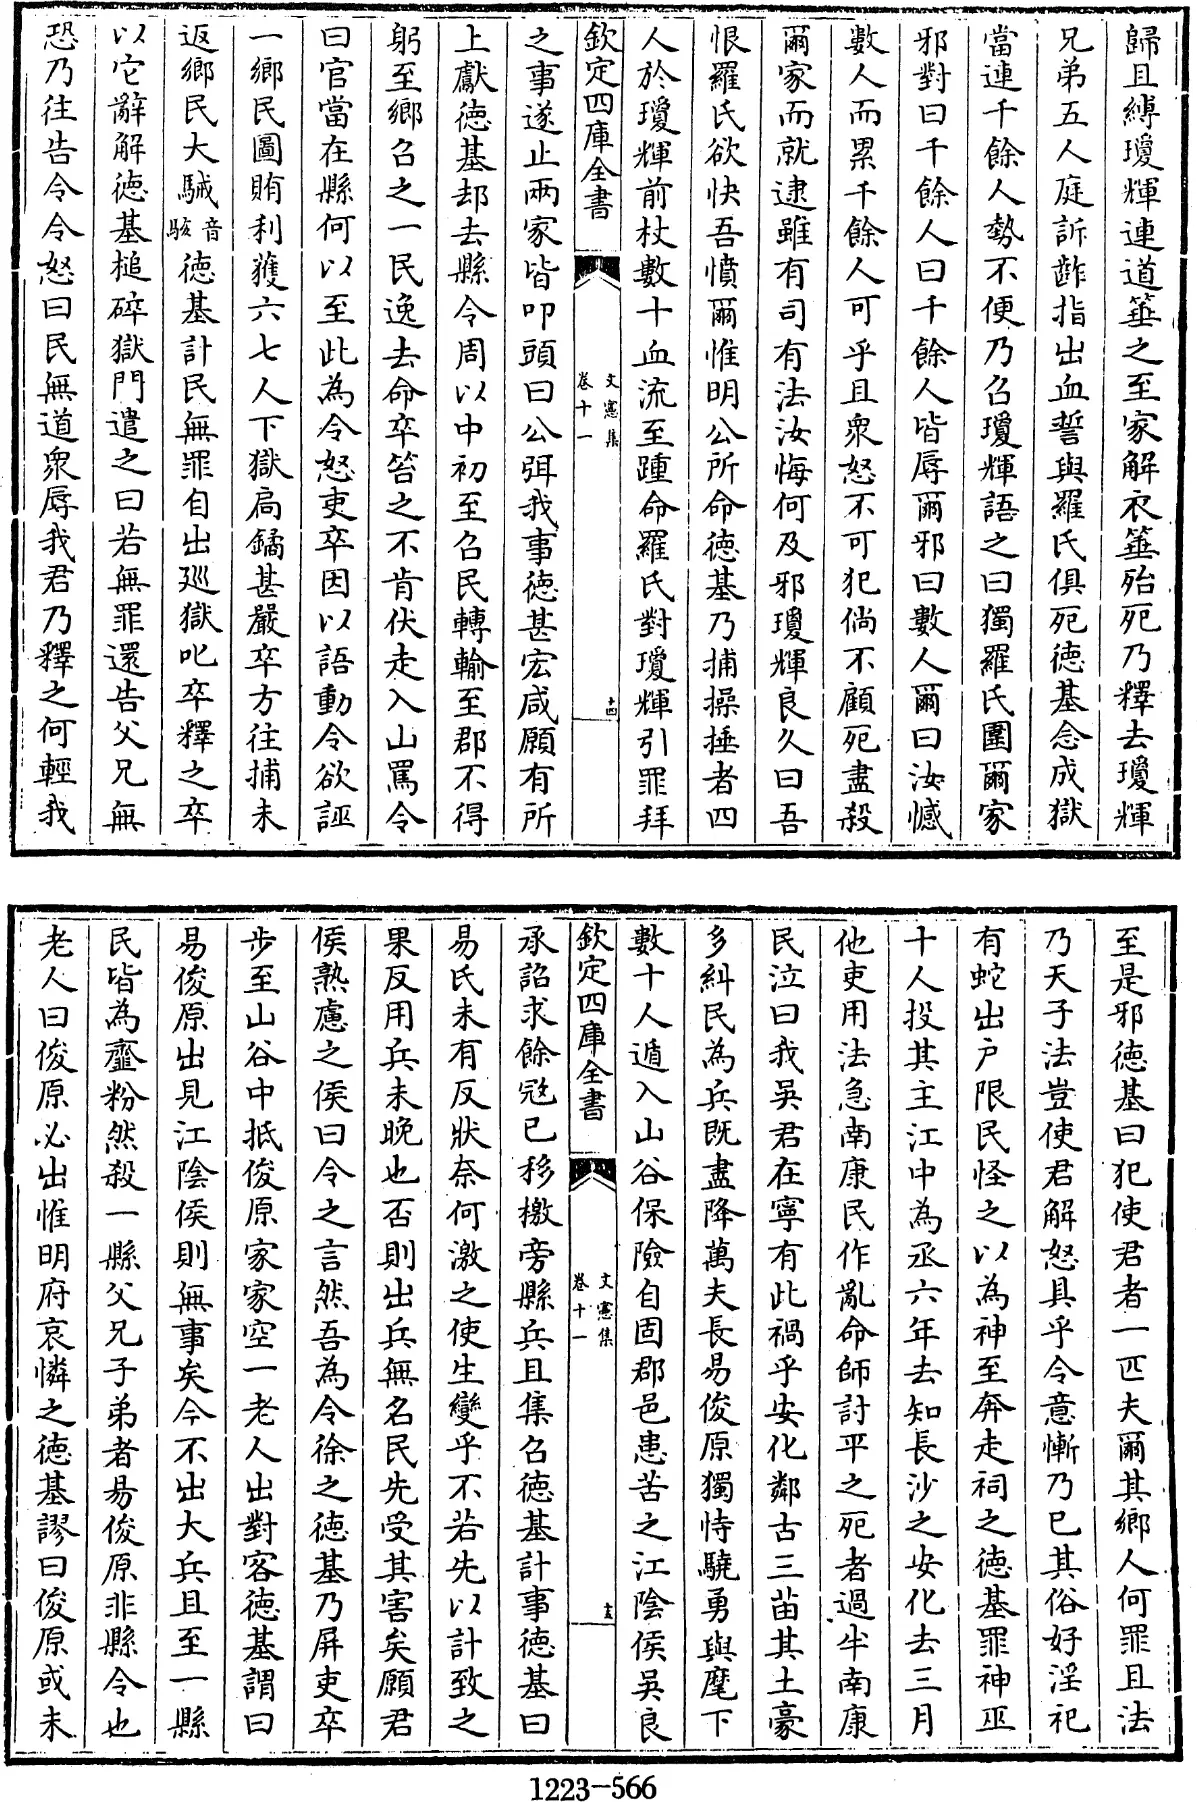 歸且縛瓊輝連道箠之至家解衣箠殆死乃釋去瓊輝
兄弟五人庭訴齚指出血誓與羅氏俱死徳基念成獄
當連千餘人勢不便乃召瓊輝語之曰獨羅氏圍爾家
邪對曰千餘人曰千餘人皆辱爾邪曰數人爾曰汝憾
數人而累千餘人可乎且衆怒不可犯倘不顧死盡殺
爾家而就逮雖有司有法汝悔何及邪瓊輝良久曰吾
恨羅氏欲快吾憤爾惟明公所命徳基乃捕操捶者四
人於瓊輝前杖數十血流至踵命羅氏對瓊輝引罪拜
欽定四庫全書
文憲集
卷十一
十四
之事遂止兩家皆叩頭曰公弭我事徳甚宏咸願有所
上獻徳基却去縣令周以中初至召民轉輸至郡不得
躬至鄉召之一民逸去命卒笞之不肯伏走入山罵令
曰官當在縣何以至此為令怒吏卒因以語動令欲誣
一鄉民圖賄利獲六七人下獄扃鐍甚嚴卒方往捕未
返鄉民大駴音駭徳基計民無罪自出廵獄叱卒釋之卒
以它辭解徳基搥碎獄門遣之曰若無罪還告父兄無
恐乃往告令令怒曰民無道衆辱我君乃釋之何輕我
至是邪徳基曰犯使君者一匹夫爾其鄉人何罪且法
乃天子法豈使君解怒具乎令意慚乃已其俗好淫祀
有蛇出戶限民怪之以為神至奔走祠之徳基罪神巫
十人投其主江中為丞六年去知長沙之安化去三月
他吏用法急南康民作亂命師討平之死者過半南康
民泣曰我吳君在寧有此禍乎安化鄰古三苗其土豪
多糾民為兵既盡降萬夫長易俊原獨恃驍勇與麾下
數十人遁入山谷保險自固郡邑患苦之江陰侯吳良
欽定四庫全書
文憲集
卷十一
十五
承詔求餘冦已移檄旁縣兵且集召徳基計事徳基曰
易氏未有反狀奈何激之使生變乎不若先以計致之
果反用兵未晚也否則出兵無名民先受其害矣願君
侯熟慮之侯曰令之言然吾為令徐之徳基乃屏吏卒
步至山谷中抵俊原家家空一老人出對客徳基謂曰
易俊原出見江陰侯則無事矣今不出大兵且至一縣
民皆為齏粉然殺一縣父兄子弟者易俊原非縣令也
老人曰俊原必出惟明府哀憐之徳基謬曰俊原或未
1223-566